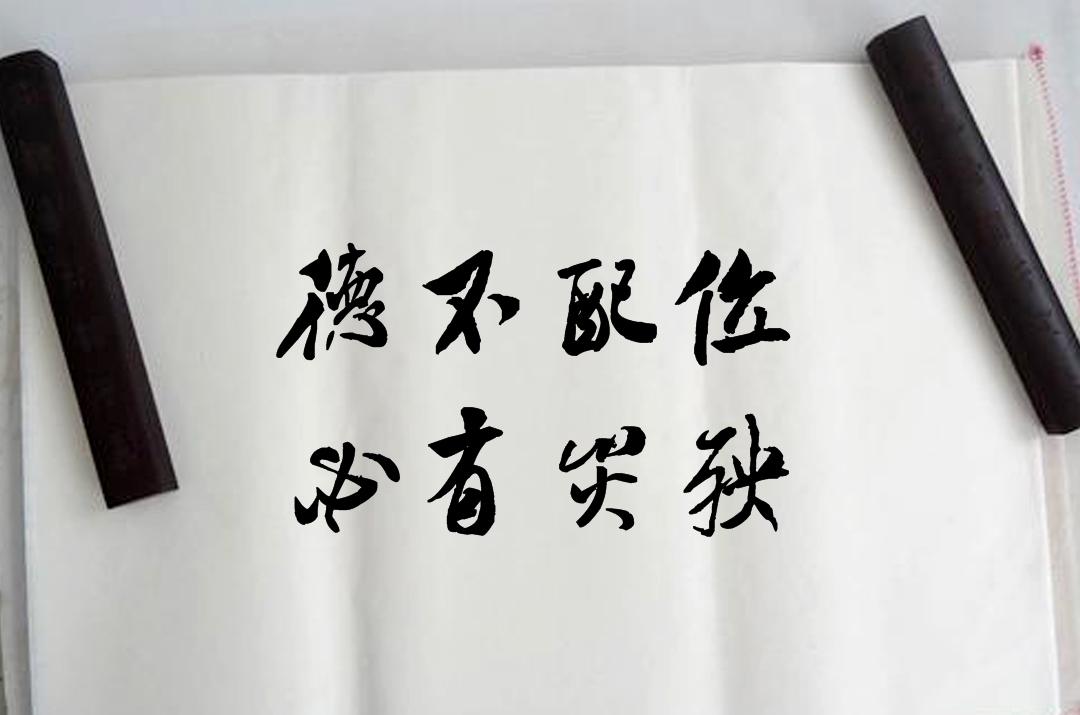 德不配位
必有災殃